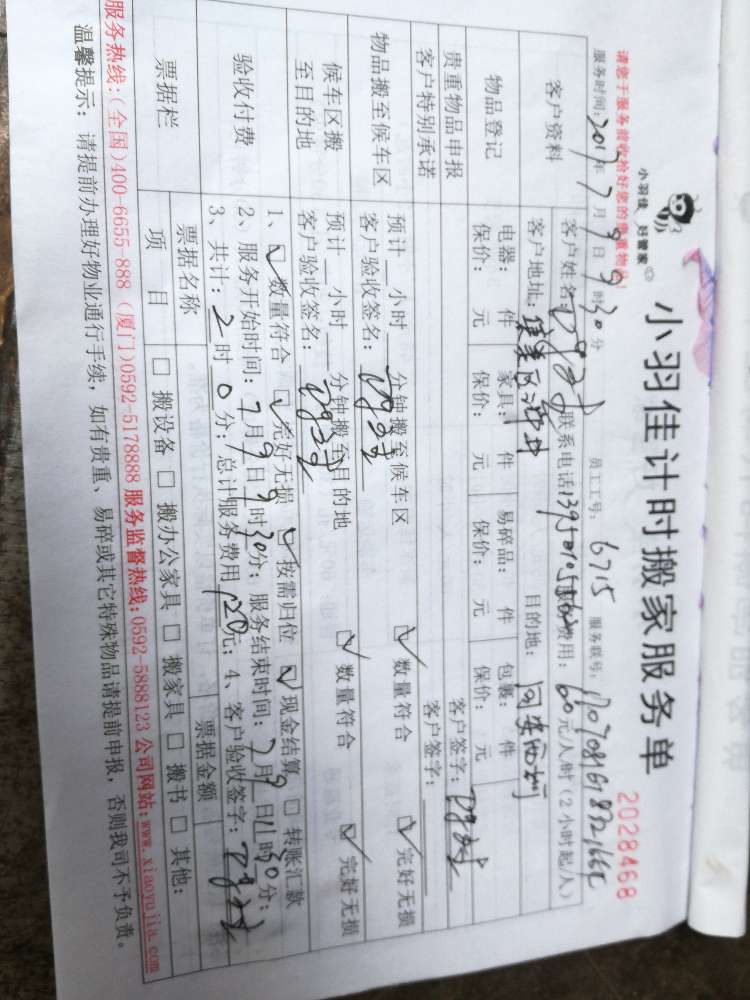 小羽佳 好管家
小羽佳计时搬家服务单
请您于服务前收拾好您的贵重物品!
2028468
服务时间: 2017年7月9日9时30分 员工工号: 6715 服务联号:
客户资料 客户姓名: 联系电话 费用: 60元/人/时(2小时起/人)
客户地址: 目的地:
物品登记 电器: 件 家具: 件 易碎品: 件 包裹: 件
保价: 元 保价: 元 保价: 元 保价: 元
贵重物品申报 客户签字:
客户特别承诺 客户签字:
物品搬至候车区 预计 小时 分钟搬至候车区 ☑ 数量符合 ☑ 完好无损
客户验收签名:
候车区搬至目的地 预计 小时 分钟搬至目的地 ☑ 数量符合 ☑ 完好无损
客户验收签名:
验收付费 1、☑ 数量符合 ☑ 完好无损 ☑ 按需归位 ☑ 现金结算 □ 转账汇款
2、服务开始时间: 7月9日9时30分; 服务结束时间: 7月9日11时30分;
3、共计: 2时0分; 总计服务费用120元; 4、客户验收签字:
票据栏 票据名称 票据金额
项目 □ 搬设备 □ 搬办公家具 □ 搬家具 □ 搬书 □ 其他:
服务热线:(全国)400-6655-888 (厦门)0592-5178888 服务监督热线:0592-5888123 公司网站:www.xiaoyujia.com
温馨提示: 请提前办理好物业通行手续, 如有贵重、易碎或其它特殊物品请提前申报, 否则我司不予负责。